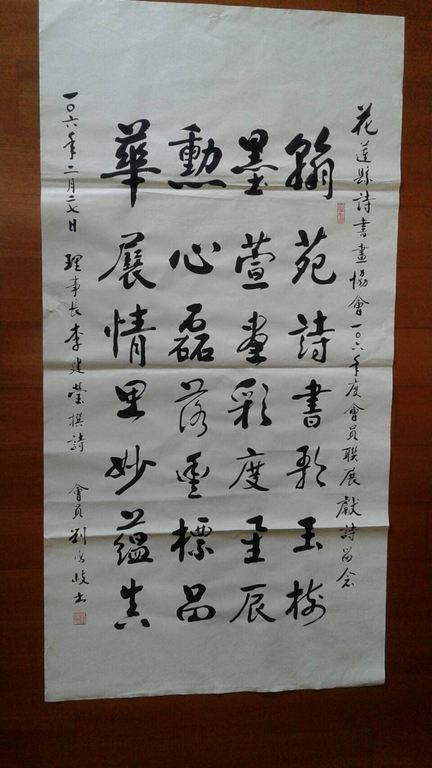 花蓮縣詩書畫協會一〇六年度會員聯展獻詩留念
翰苑詩書玉樹
墨萱畫彩度星辰
勳心磊落標品
華展情妙蘊真
一〇六年二月日 理事長李建瑩撰詩 會員劉峻書